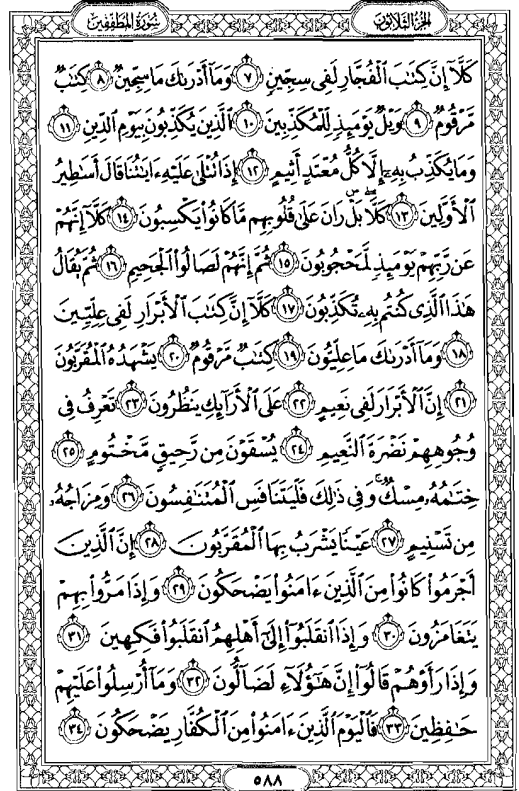 سُورَةُ المُطَفِّفِينَ
الجُزْءُ الثَّلَاثُونَ
كَلَّآ إِنَّ كِتَٰبَ ٱلْفُجَّارِ لَفِى سِجِّينٍ ٧ وَمَآ أَدْرَىٰكَ مَا سِجِّينٌ ٨ كِتَٰبٌ
مَّرْقُومٌ ٩ وَيْلٌ يَوْمَئِذٍ لِّلْمُكَذِّبِينَ ١٠ ٱلَّذِينَ يُكَذِّبُونَ بِيَوْمِ ٱلدِّينِ ١١
وَمَا يُكَذِّبُ بِهِۦٓ إِلَّا كُلُّ مُعْتَدٍ أَثِيمٍ ١٢ إِذَا تُتْلَىٰ عَلَيْهِ ءَايَٰتُنَا قَالَ أَسَٰطِيرُ
ٱلْأَوَّلِينَ ١٣ كَلَّا ۖ بَلْ ۜ رَانَ عَلَىٰ قُلُوبِهِم مَّا كَانُوا۟ يَكْسِبُونَ ١٤ كَلَّآ إِنَّهُمْ
عَن رَّبِّهِمْ يَوْمَئِذٍ لَّمَحْجُوبُونَ ١٥ ثُمَّ إِنَّهُمْ لَصَالُوا۟ ٱلْجَحِيمِ ١٦ ثُمَّ يُقَالُ
هَٰذَا ٱلَّذِى كُنتُم بِهِۦ تُكَذِّبُونَ ١٧ كَلَّآ إِنَّ كِتَٰبَ ٱلْأَبْرَارِ لَفِى عِلِّيِّينَ
١٨ وَمَآ أَدْرَىٰكَ مَا عِلِّيُّونَ ١٩ كِتَٰبٌ مَّرْقُومٌ ٢٠ يَشْهَدُهُ ٱلْمُقَرَّبُونَ
٢١ إِنَّ ٱلْأَبْرَارَ لَفِى نَعِيمٍ ٢٢ عَلَى ٱلْأَرَآئِكِ يَنظُرُونَ ٢٣ تَعْرِفُ فِى
وُجُوهِهِمْ نَضْرَةَ ٱلنَّعِيمِ ٢٤ يُسْقَوْنَ مِن رَّحِيقٍ مَّخْتُومٍ ٢٥
خِتَٰمُهُۥ مِسْكٌ ۚ وَفِى ذَٰلِكَ فَلْيَتَنَافَسِ ٱلْمُتَنَٰفِسُونَ ٢٦ وَمِزَاجُهُۥ
مِن تَسْنِيمٍ ٢٧ عَيْنًا يَشْرَبُ بِهَا ٱلْمُقَرَّبُونَ ٢٨ إِنَّ ٱلَّذِينَ
أَجْرَمُوا۟ كَانُوا۟ مِنَ ٱلَّذِينَ ءَامَنُوا۟ يَضْحَكُونَ ٢٩ وَإِذَا مَرُّوا۟ بِهِمْ
يَتَغَامَزُونَ ٣٠ وَإِذَا ٱنقَلَبُوٓا۟ إِلَىٰٓ أَهْلِهِمُ ٱنقَلَبُوا۟ فَكِهِينَ ٣١
وَإِذَا رَأَوْهُمْ قَالُوٓا۟ إِنَّ هَٰٓؤُلَآءِ لَضَآلُّونَ ٣٢ وَمَآ أُرْسِلُوا۟ عَلَيْهِمْ
حَٰفِظِينَ ٣٣ فَٱلْيَوْمَ ٱلَّذِينَ ءَامَنُوا۟ مِنَ ٱلْكُفَّارِ يَضْحَكُونَ ٣٤
٥٨٨